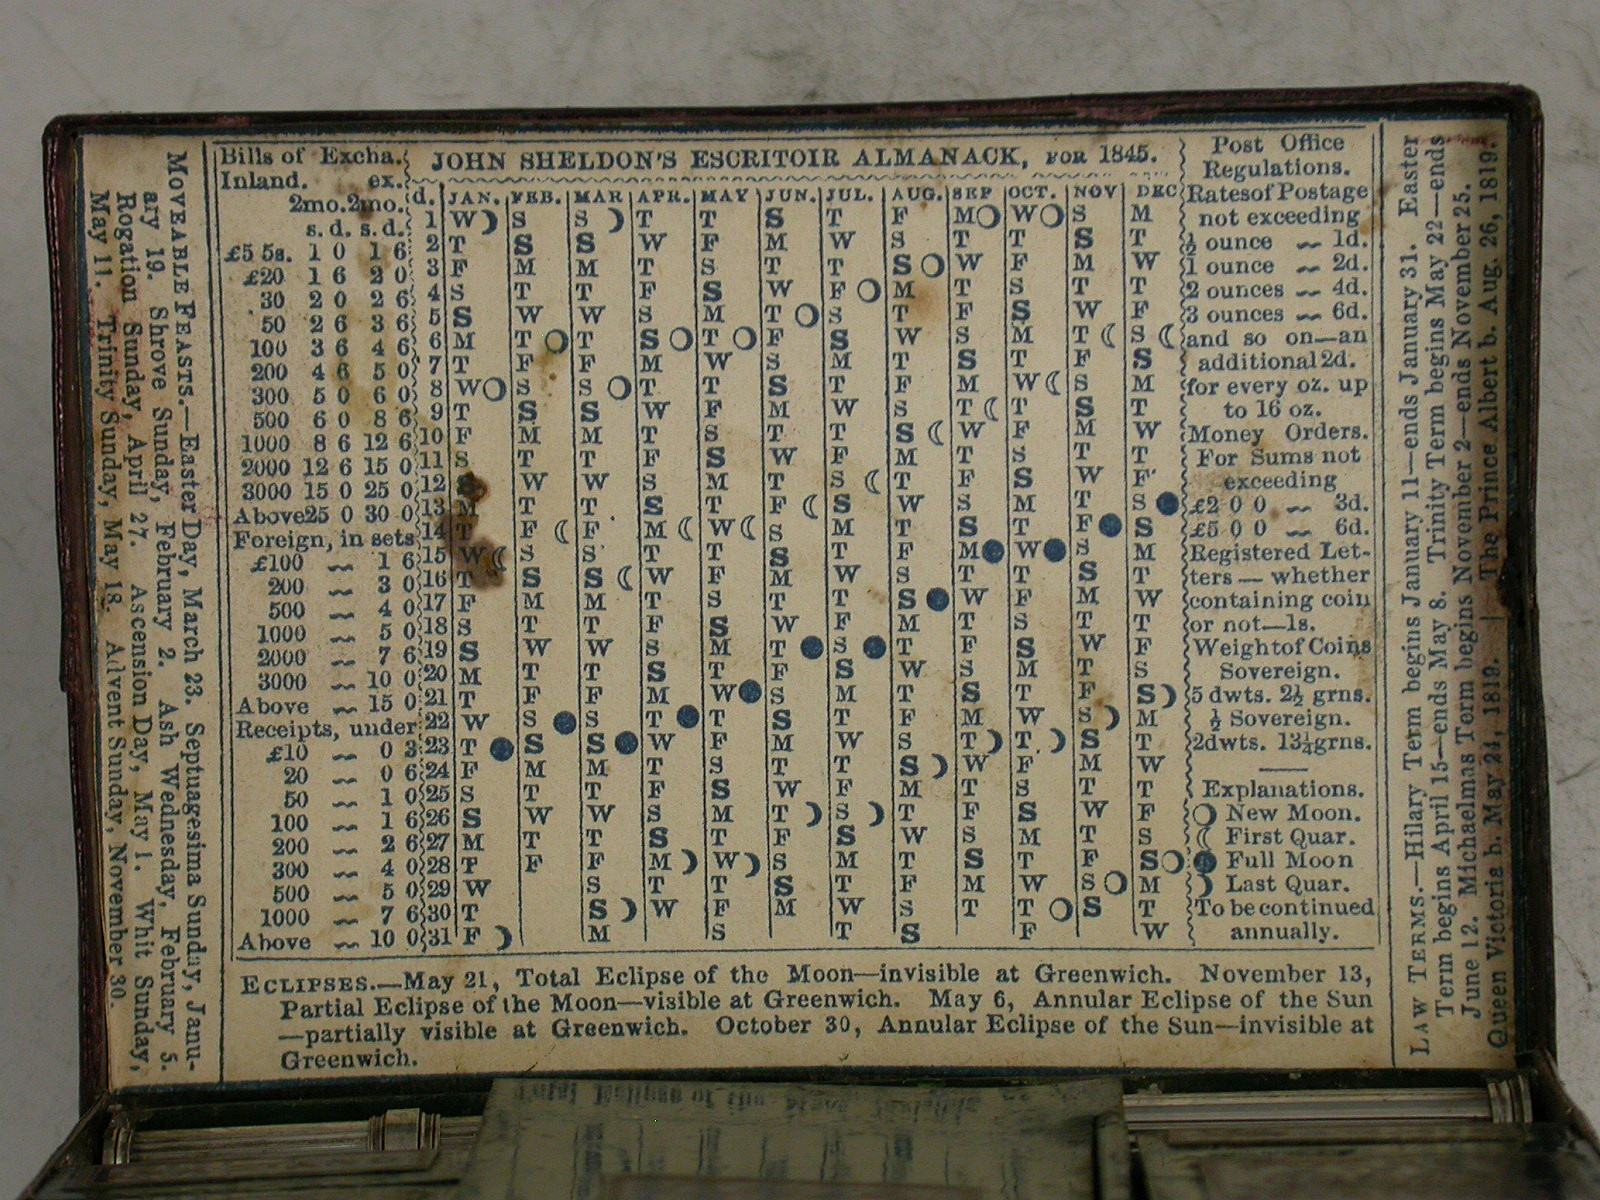 MOVEABLE FEASTS.—Easter Day, March 23. Septuagesima Sunday, Janu-
ary 19. Shrove Sunday, February 2. Ash Wednesday, February 5.
Rogation Sunday, April 27. Ascension Day, May 1. Whit Sunday,
May 11. Trinity Sunday, May 18. Advent Sunday, November 30.
Bills of Excha.
Inland. ex.
2mo. 2mo.
s. d. s. d.
£5 5s. 1 0 1 6
£20 1 6 2 0
30 2 0 2 6
50 2 6 3 6
100 3 6 4 6
200 4 6 5 0
300 5 0 6 0
500 6 0 8 6
1000 8 6 12 6
2000 12 6 15 0
3000 15 0 25 0
Above 25 0 30 0
Foreign, in sets
£100 1 6
200 3 0
500 4 0
1000 5 0
2000 7 6
3000 10 0
Above 15 0
Receipts, under
£10 0 3
20 0 6
50 1 0
100 1 6
200 2 6
300 4 0
500 5 0
1000 7 6
Above 10 0
JOHN SHELDON'S ESCRITOIR ALMANACK, FOR 1845.
d. JAN. FEB. MAR APR. MAY JUN. JUL. AUG. SEP OCT. NOV DEC
1 W S S T T S T F M W S M
2 T S S W F M W S T T S T
3 F M M T S T T S W F M W
4 S T T F S W F M T S T T
5 S W W S M T S T F S W F
6 M T T S T F S W S M T S
7 T F F M W S M T S T F S
8 W S S T T S T F M W S M
9 T S S W F M W S T T S T
10 F M M T S T T S W F M W
11 S T T F S W F M T S T T
12 S W W S M T S T F S W F
13 M T T S T F S W S M T S
14 T F F M W S M T S T F S
15 W S S T T S T F M W S M
16 T S S W F M W S T T S T
17 F M M T S T T S W F M W
18 S T T F S W F M T S T T
19 S W W S M T S T F S W F
20 M T T S T F S W S M T S
21 T F F M W S M T S T F S
22 W S S T T S T F M W S M
23 T S S W F M W S T T S T
24 F M M T S T T S W F M W
25 S T T F S W F M T S T T
26 S W W S M T S T F S W F
27 M T T S T F S W S M T S
28 T F F M W S M T S T F S
29 W S T T S T F M W S M
30 T S W F M W S T T S T
31 F M S T S F W
Post Office
Regulations.
Rates of Postage
not exceeding
½ ounce 1d.
1 ounce 2d.
2 ounces 4d.
3 ounces 6d.
and so on—an
additional 2d.
for every oz. up
to 16 oz.
Money Orders.
For Sums not
exceeding
£2 0 0 3d.
£5 0 0 6d.
Registered Let-
ters — whether
containing coin
or not—1s.
Weight of Coins
Sovereign.
5 dwts. 2½ grns.
½ Sovereign.
2dwts. 13¼grns.
Explanations.
New Moon.
First Quar.
Full Moon
Last Quar.
To be continued
annually.
ECLIPSES.—May 21, Total Eclipse of the Moon—invisible at Greenwich. November 13,
Partial Eclipse of the Moon—visible at Greenwich. May 6, Annular Eclipse of the Sun
—partially visible at Greenwich. October 30, Annular Eclipse of the Sun—invisible at
Greenwich.
LAW TERMS.—Hilary Term begins January 11—ends January 31. Easter
Term begins April 15—ends May 8. Trinity Term begins May 22—ends
June 12. Michaelmas Term begins November 2—ends November 25.
Queen Victoria b. May 24, 1819. — The Prince Albert b. Aug. 26, 1819.